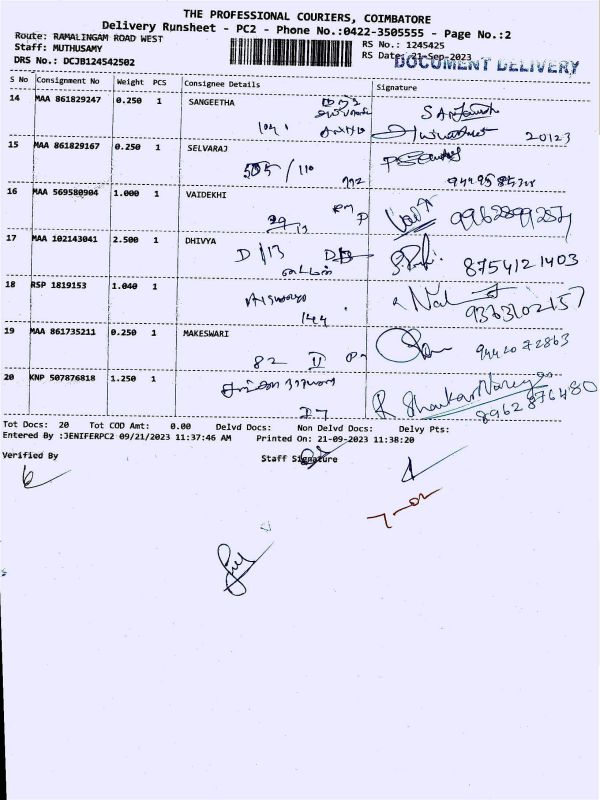 THE PROFESSIONAL COURIERS, COIMBATORE
Delivery Runsheet - PC2 - Phone No.:0422-3505555 - Page No.:2
Route: RAMALINGAM ROAD WEST
RS No.: 1245425
Staff: MUTHUSAMY
RS Date: 21-Sep-2023
DOCUMENT DELIVERY
DRS No.: DCJB124542502
S No Consignment No Weight PCS Consignee Details Signature
14 MAA 861829247 0.250 1 SANGEETHA
20123
15 MAA 861829167 0.250 1 SELVARAJ
505/110
16 MAA 569580904 1.000 1 VAIDEKHI
29/13
9962899287
17 MAA 102143041 2.500 1 DHIVYA
D/13
8754121403
18 RSP 1819153 1.040 1
144
9363102157
19 MAA 861735211 0.250 1 MAKESWARI
82 II
9442072863
20 KNP 507876818 1.250 1
R Shankar Narayan
27
8962876480
Tot Docs: 20 Tot COD Amt: 0.00 Delvd Docs: Non Delvd Docs: Delvy Pts:
Entered By :JENIFERPC2 09/21/2023 11:37:46 AM Printed On: 21-09-2023 11:38:20
Verified By Staff Signature